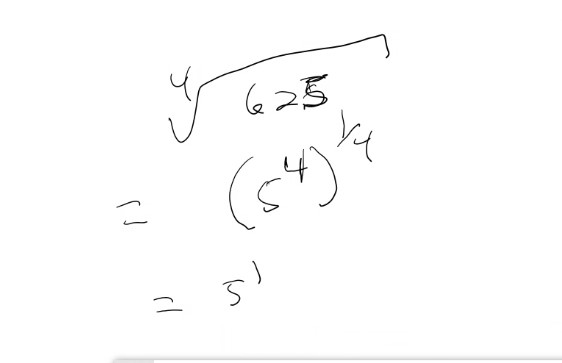 ⁴√625
= (5⁴)^1/4
= 5¹